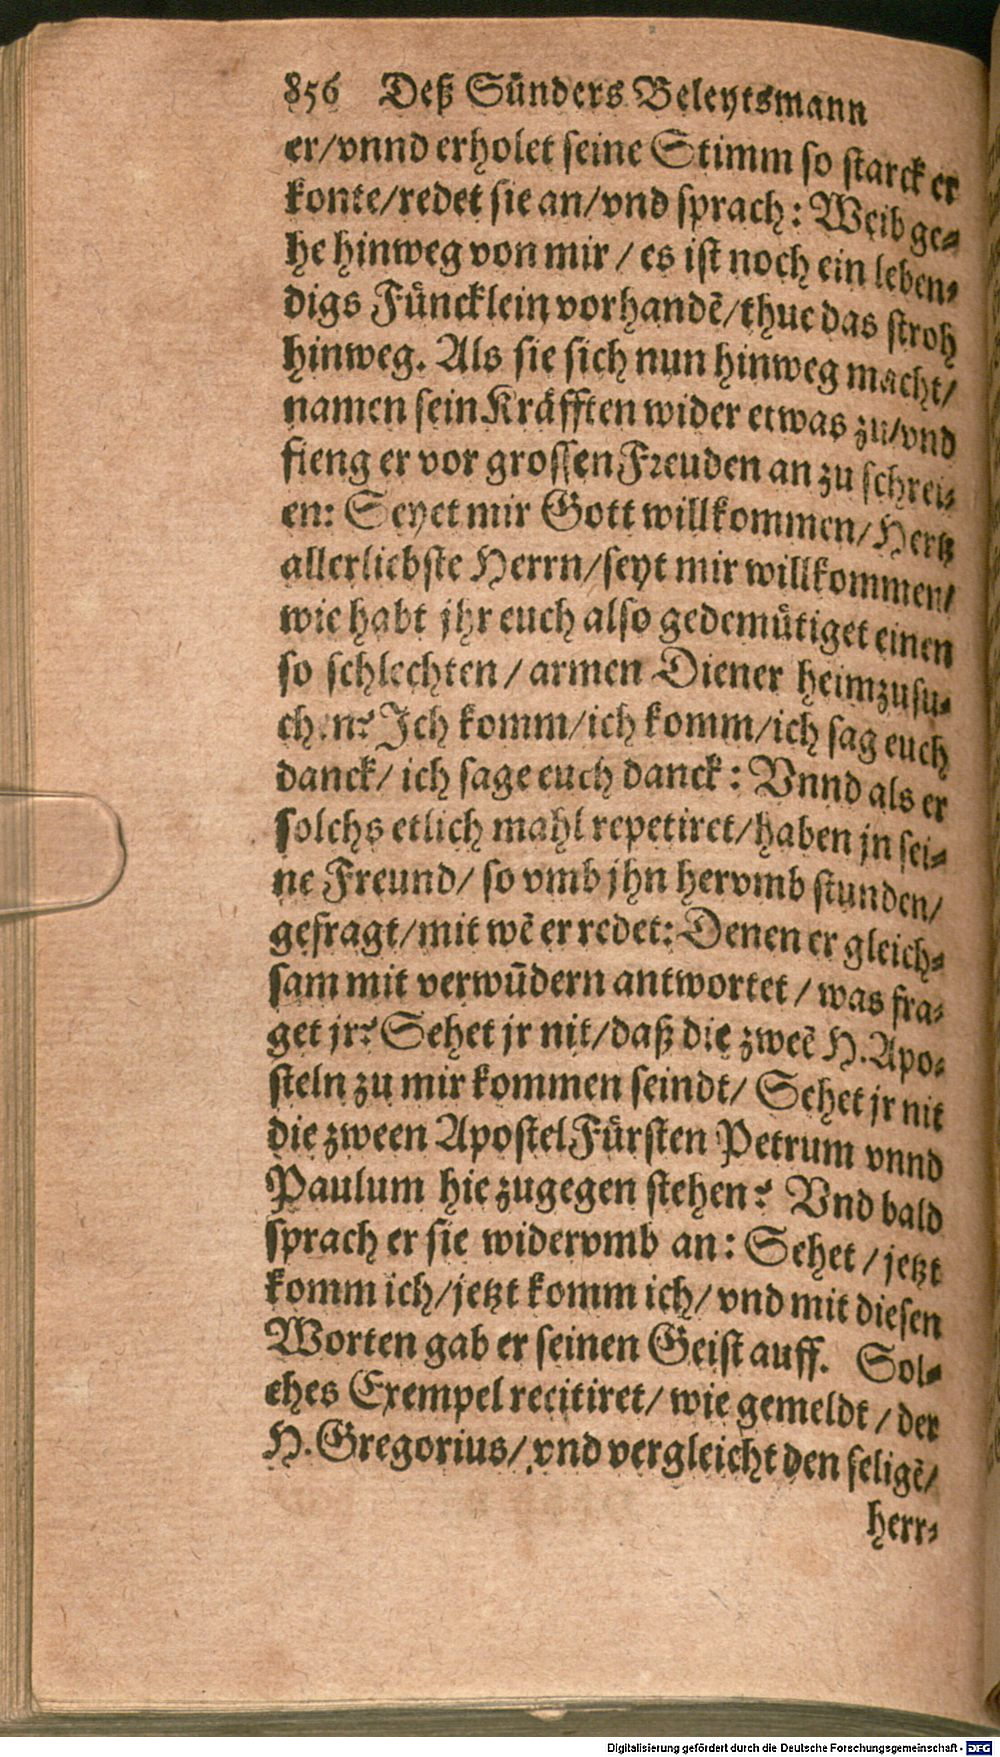 856 Deß Sünders Beleytsmann
er/vnnd erholet seine Stimm so starck er
konte/redet sie an/vnd sprach: Weib ge-
he hinweg von mir / es ist noch ein leben-
digs Füncklein vorhandē/thue das stroh
hinweg. Als sie sich nun hinweg macht/
namen sein Kräfften wider etwas zu/vnd
fieng er vor grossen Freuden an zu schrei-
en: Seyet mir Gott willkommen/Hertz
allerliebste Herrn/seyt mir willkommen/
wie habt jhr euch also gedemütiget einen
so schlechten / armen Diener heimzusu-
chen? Ich komm/ich komm/ich sag euch
danck/ ich sage euch danck: Vnnd als er
solchs etlich mahl repetiret/haben jn sei-
ne Freund/ so vmb jhn hervmb stunden/
gefragt/mit wē er redet: Denen er gleich-
sam mit verwūdern antwortet / was fra-
get jr? Sehet jr nit/daß die zweē H. Apo-
steln zu mir kommen seindt/ Sehet jr nit
die zween Apostel Fürsten Petrum vnnd
Paulum hie zugegen stehen? Vnd bald
sprach er sie widervmb an: Sehet / jetzt
komm ich/jetzt komm ich/ vnd mit diesen
Worten gab er seinen Geist auff. Sol-
ches Exempel recitiret/ wie gemeldt / der
H. Gregorius/ vnd vergleicht den seligē/
herr-
Digitalisierung gefördert durch die Deutsche Forschungsgemeinschaft - DFG